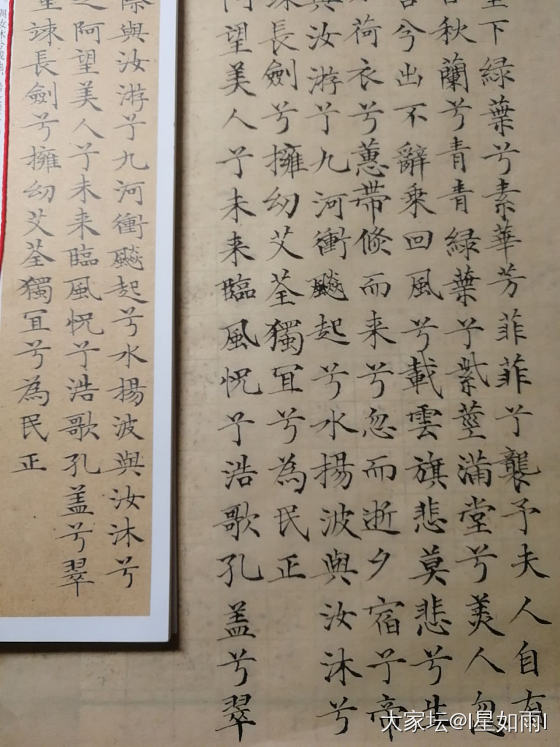 下綠葉兮素華芳菲菲兮襲予夫人自有
秋蘭兮青青綠葉兮紫莖滿堂兮美人忽
兮出不辭乘回風兮載雲旗悲莫悲兮生
荷衣兮蕙帶倏而来兮忽而逝夕宿兮帝
與汝游兮九河衝飈起兮水揚波與汝沐兮
竦長劍兮擁幼艾荃獨宜兮為民正
阿望美人兮未来臨風怳兮浩歌孔盖兮翠
際與汝游兮九河衝飈起兮水揚波與汝沐兮
之阿望美人兮未来臨風怳兮浩歌孔盖兮翠
竦長劍兮擁幼艾荃獨宜兮為民正
大家坛@l星如雨l